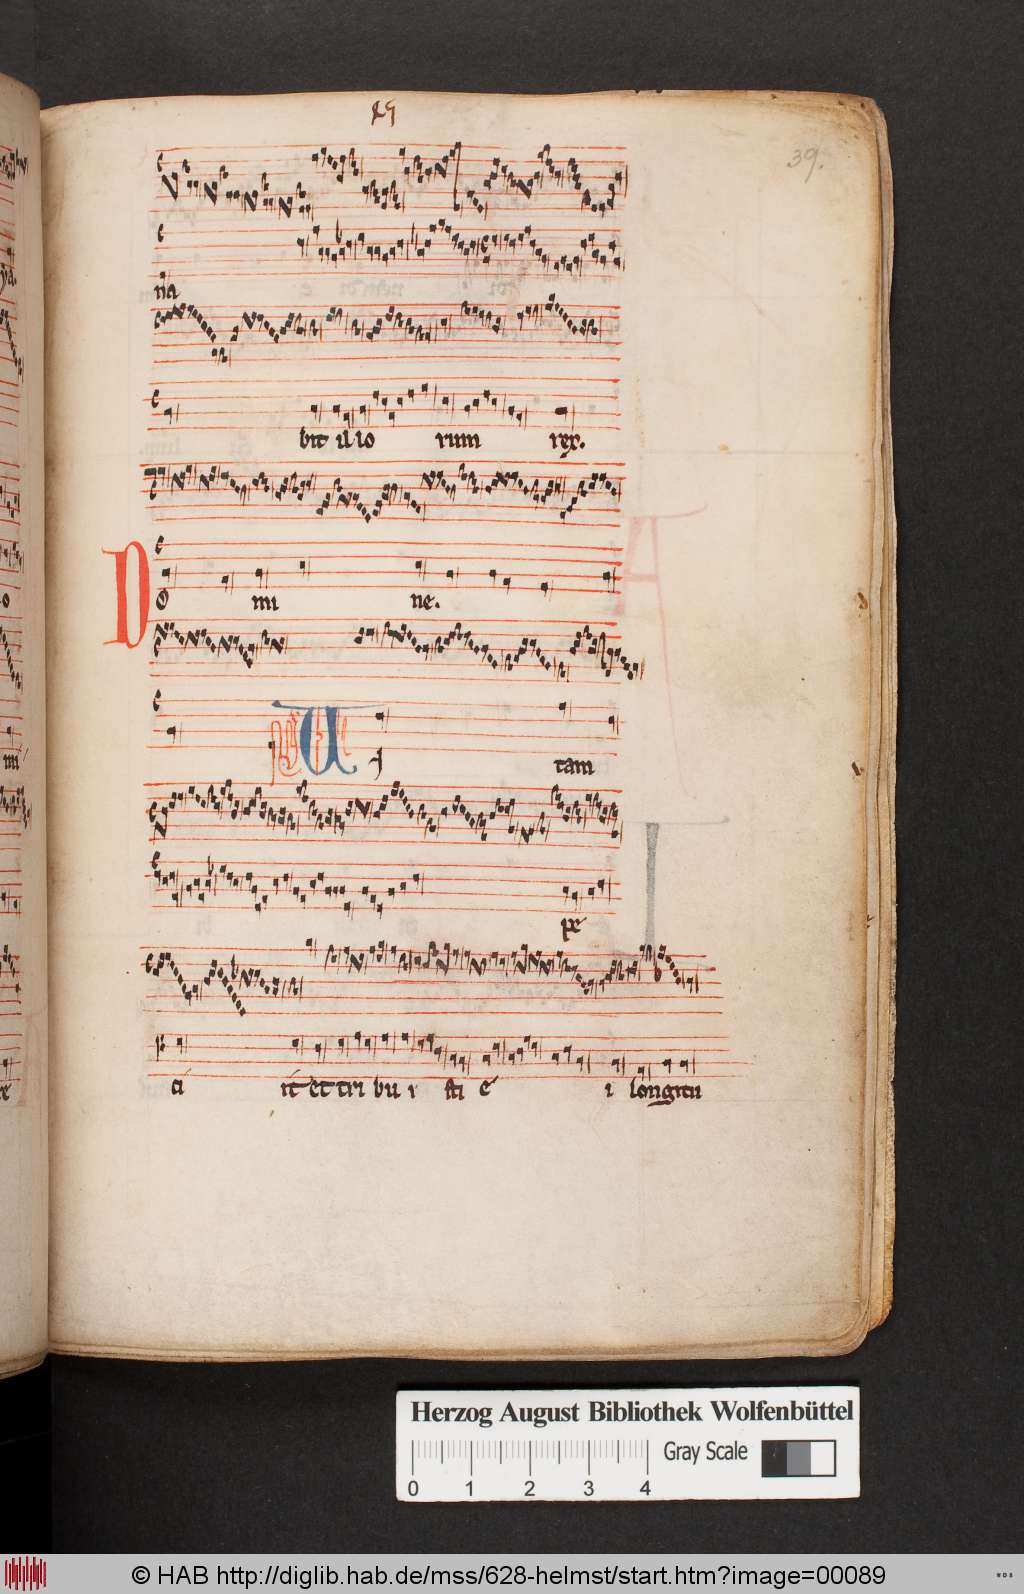 39.
na
bit il lo rum rex.
D o mi ne.
U I tam
pe
ci it et tri bu i sti e i longitu
Herzog August Bibliothek Wolfenbüttel
Gray Scale
0 1 2 3 4
© HAB http://diglib.hab.de/mss/628-helmst/start.htm?image=00089